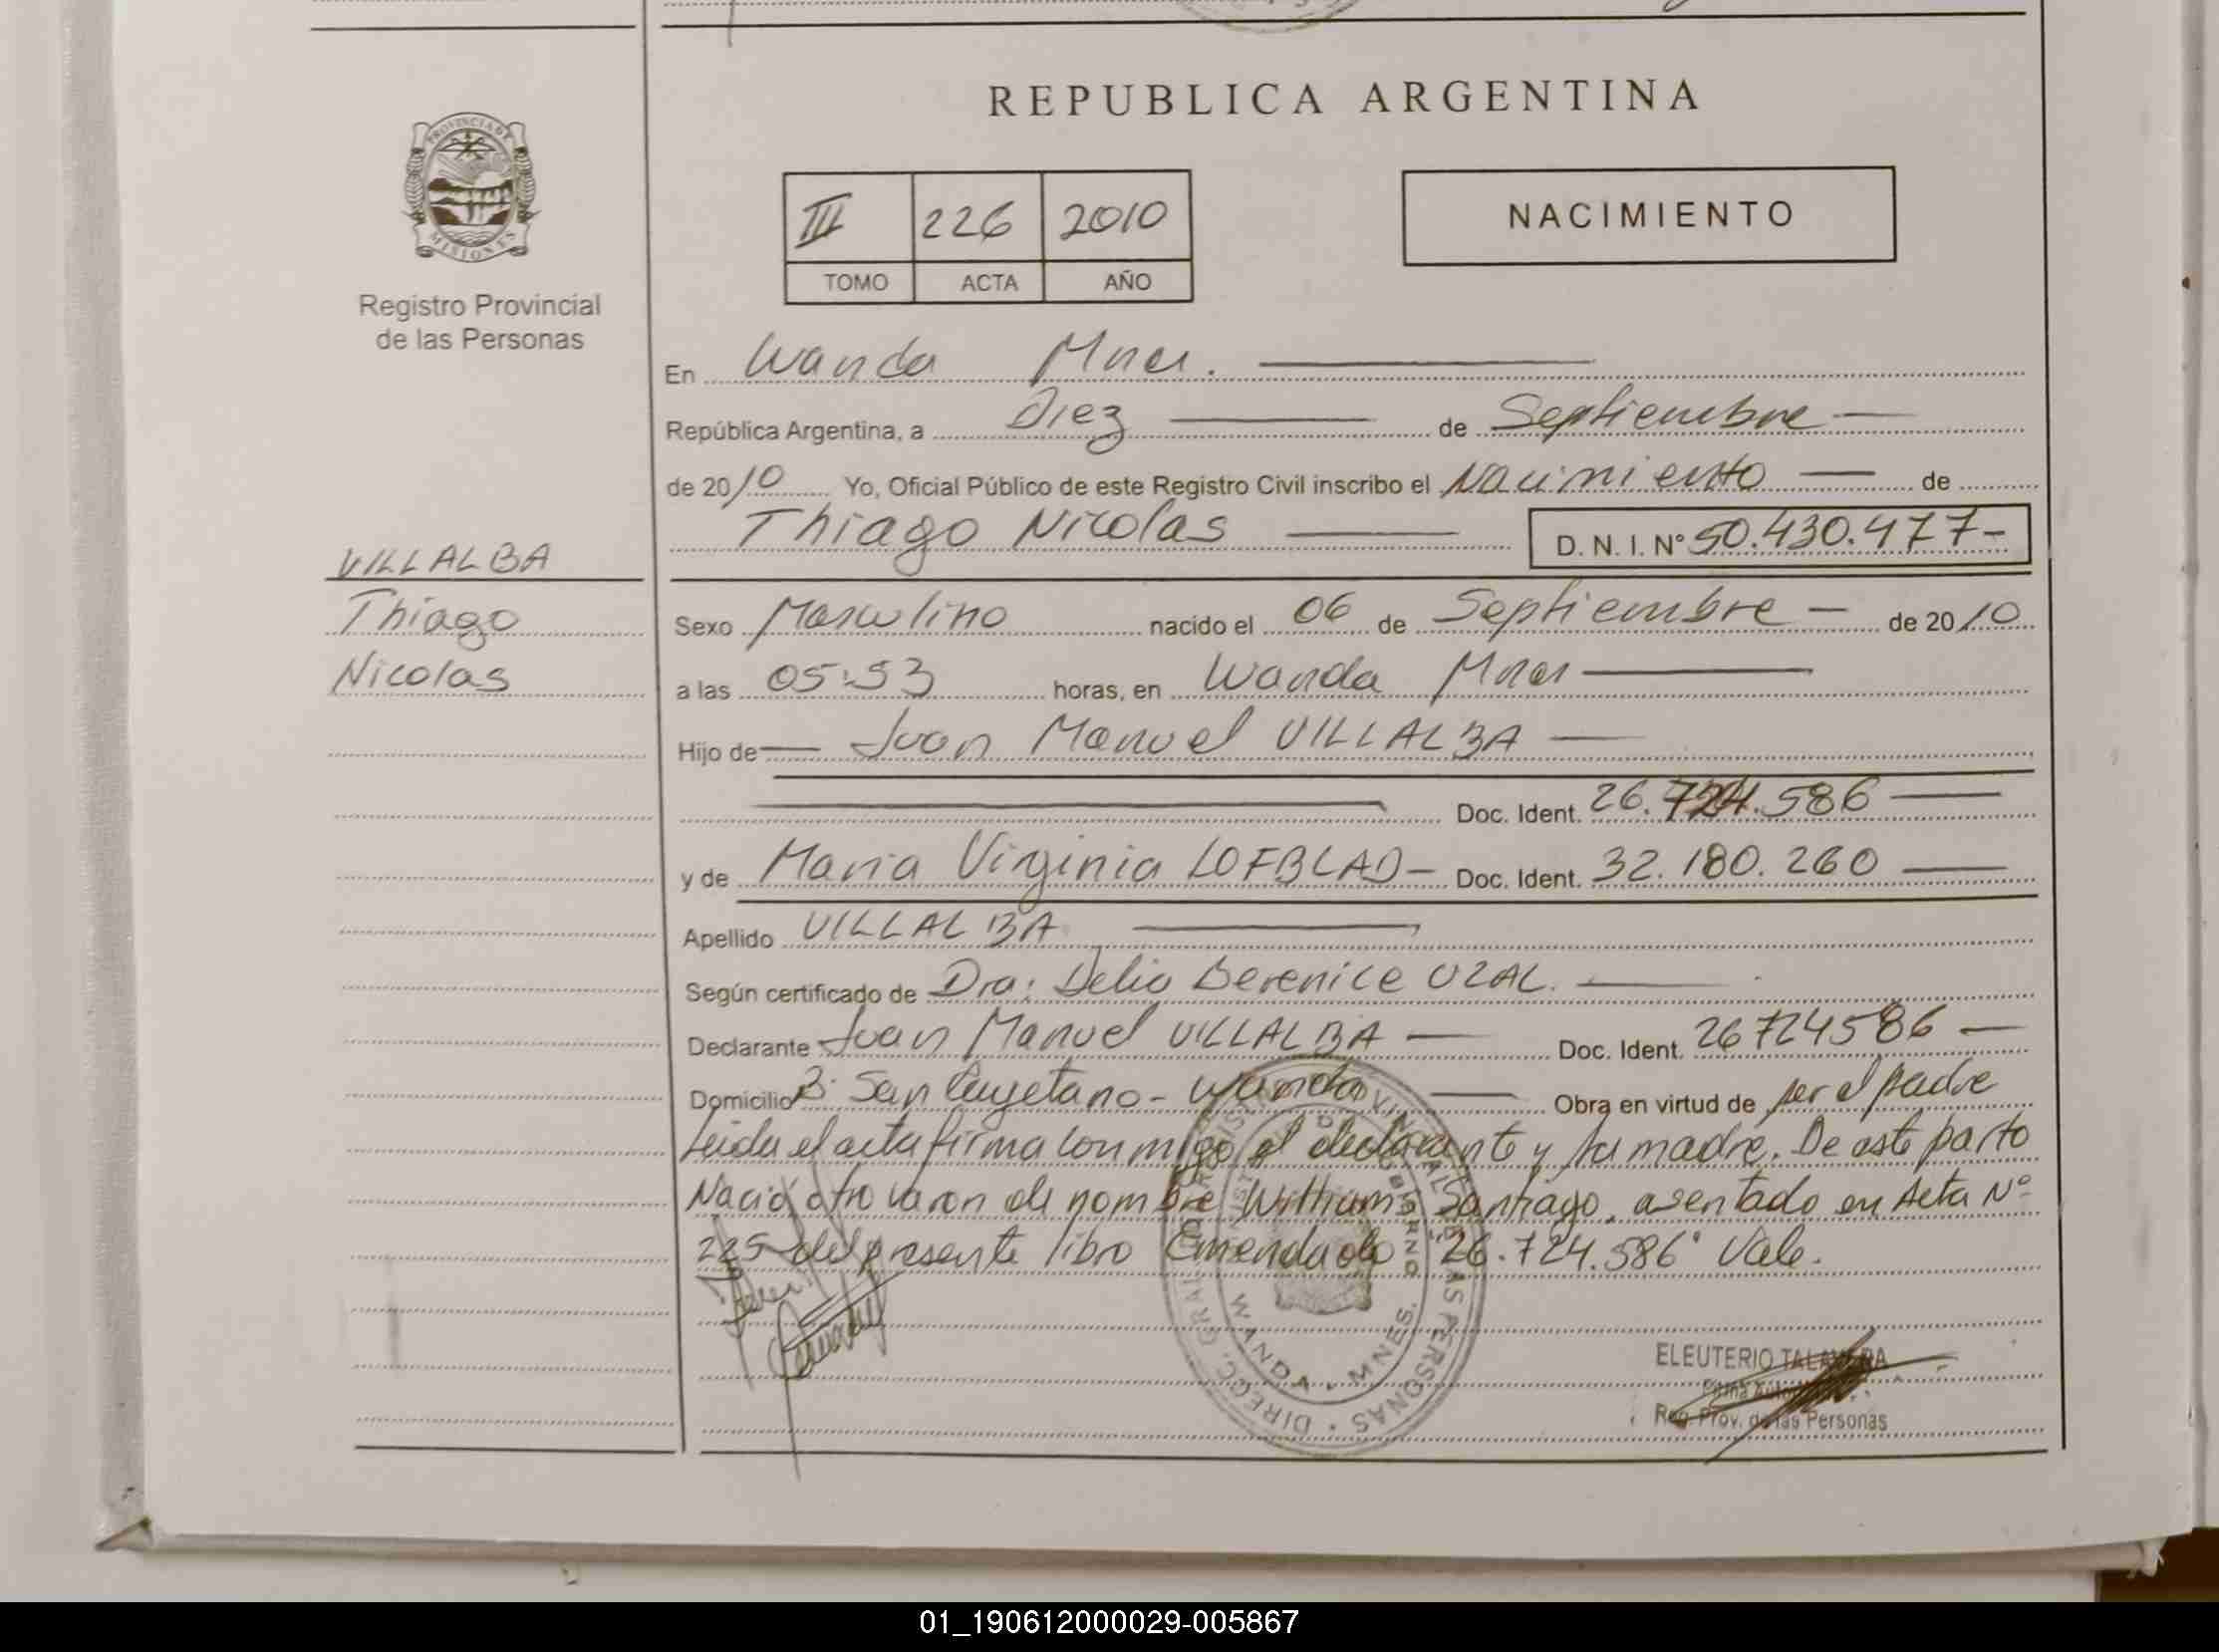 REPUBLICA ARGENTINA
PROVINCIA DE
MISIONES
Registro Provincial
de las Personas
III 226 2010
TOMO ACTA AÑO
NACIMIENTO
En Wanda Mnes.
República Argentina, a Diez de Septiembre
de 2010 Yo, Oficial Público de este Registro Civil inscribo el Nacimiento de
Thiago Nicolas D. N. I. Nº 50.430.477-
VILLALBA
Thiago
Nicolas
Sexo Masculino nacido el 06 de Septiembre de 2010
a las 05:53 horas, en Wanda Mnes
Hijo de Juan Manuel VILLALBA
Doc. Ident. 26.724.586
y de Maria Virginia LOFBLAD- Doc. Ident. 32.180.260
Apellido VILLALBA
Según certificado de Dra: Delia Berenice UZAL.
Declarante Juan Manuel VILLALBA Doc. Ident. 26724586
Domicilio Bº San Cayetano - Wanda Obra en virtud de ser el padre
Leida el acta firma conmigo el declarante y la madre. De este parto
Nació otro varon de nombre Williams Santiago, asentado en Acta Nº
225 del presente libro Emendado "26.724.586" Vale.
WANDA · MNES.
ELEUTERIO TALAVERA
Reg. Prov. de las Personas
01_190612000029-005867